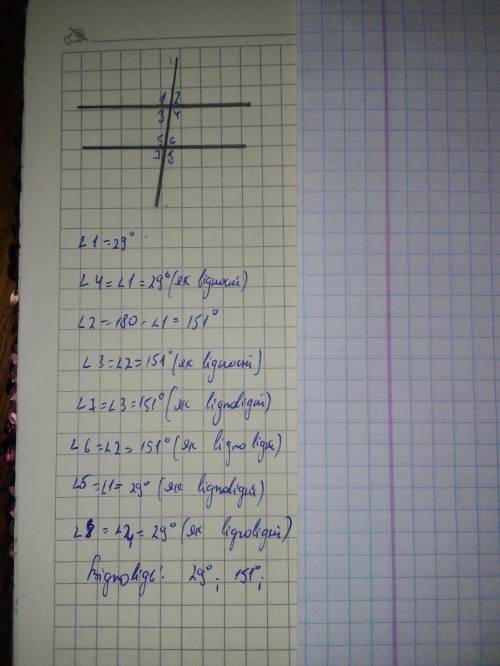 1 2
3 4
5 6
7 8
∠1=29°
∠4=∠1=29° (як відносні)
∠2=180-∠1=151°
∠3=∠2=151° (як відносні)
∠7=∠3=151° (як відповідні)
∠6=∠2=151° (як відповідні)
∠5=∠1=29° (як відповідні)
∠8=∠4=29° (як відповідні)
Відповідь: 29°; 151°;